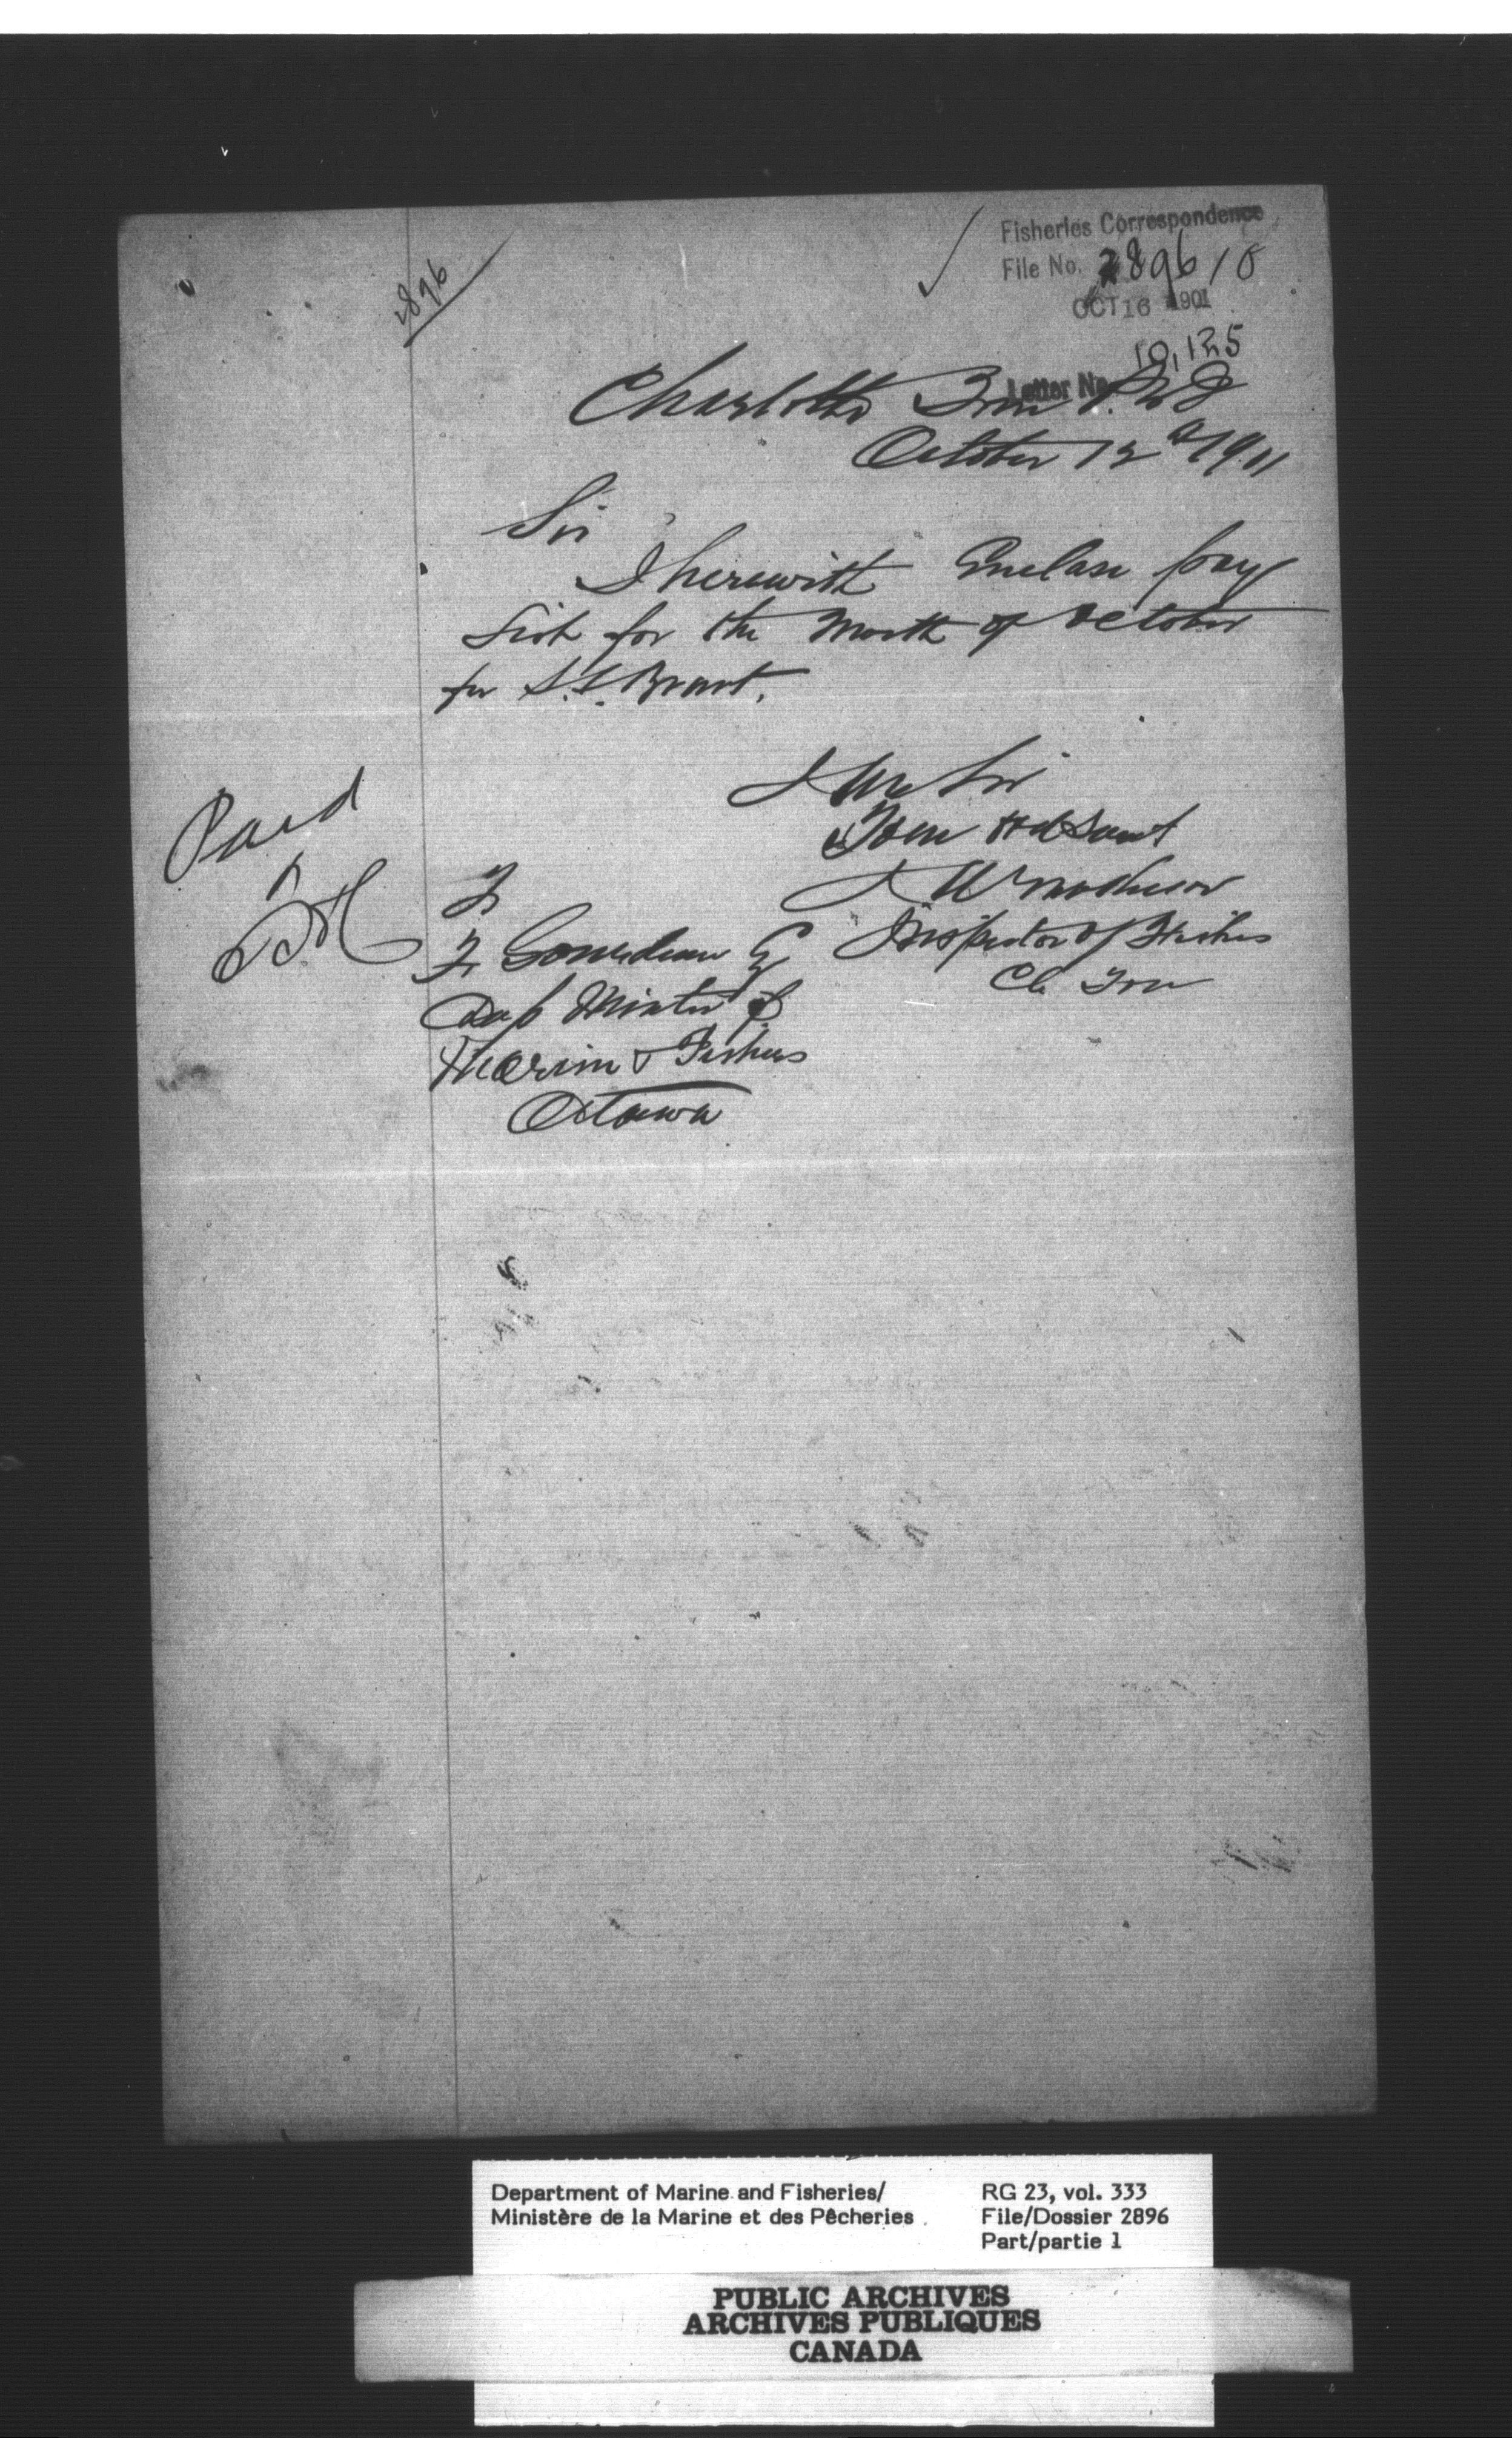 Fisheries Correspondence
File No. 2896 / 8
OCT 16 1901
10,125
Letter No.
2896
Charlotte Town P.E.I
October 12th 1901
Sir
I herewith Enclose pay
List for the Month of October
for S.S. Brant.
I am Sir
Your Obd Servant
Matheson
Inspector of Fisheries
Ch Town
Paid
To
F Gourdeau Esq
Dep Minister of
Marine & Fisheries
Ottawa
Department of Marine and Fisheries/
Ministère de la Marine et des Pêcheries
RG 23, vol. 333
File/Dossier 2896
Part/partie 1
PUBLIC ARCHIVES
ARCHIVES PUBLIQUES
CANADA